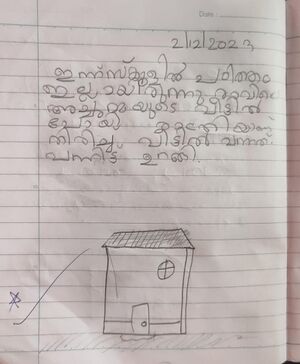 Date :
2/12/2023
ഇന്ന് സ്കൂളിൽ പഠിത്തം
ഇല്ലായിരുന്നു
അച്ചമ്മയുടെ വീട്ടിൽ
പോയി
തിരിച്ചു വീട്ടിൽ വന്നു
വന്നിട്ട് ഉറങ്ങി.